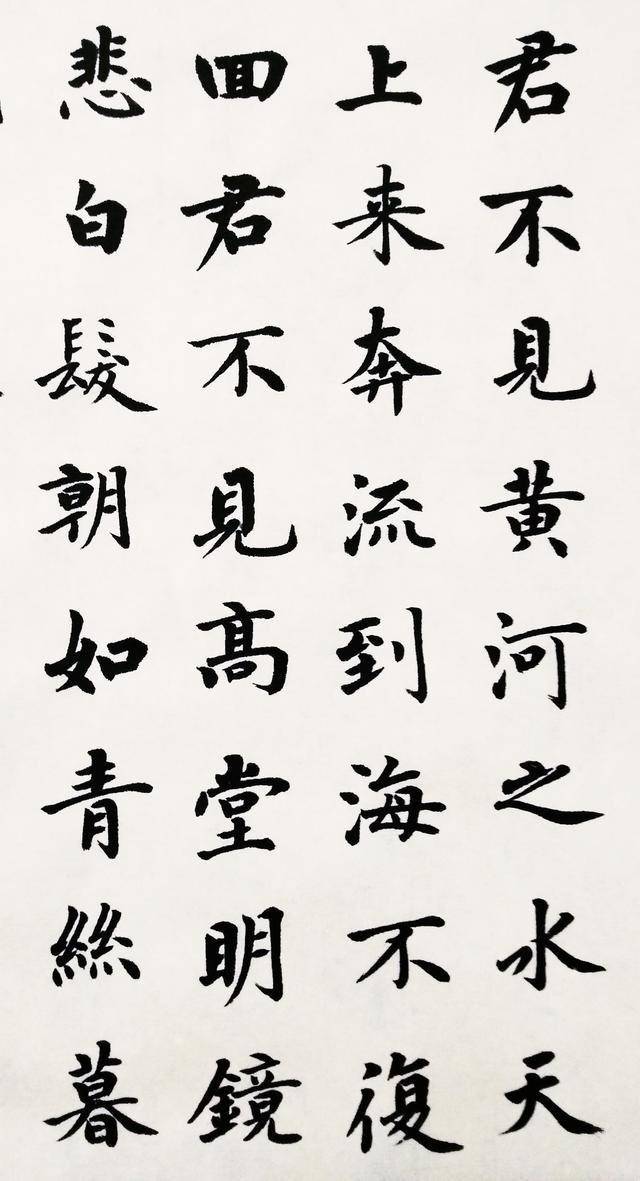 君不見黄河之水天
上来奔流到海不復
回君不見高堂明鏡
悲白髮朝如青絲暮